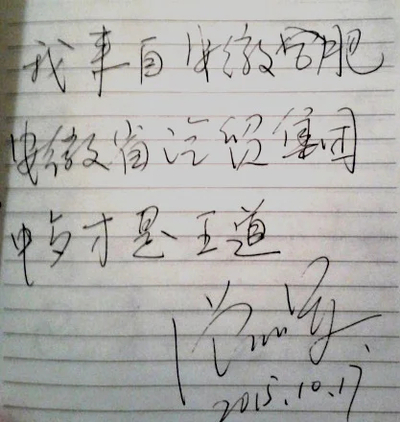 我来自安徽合肥
安徽省汽贸集团
中多才是王道
2015.10.17